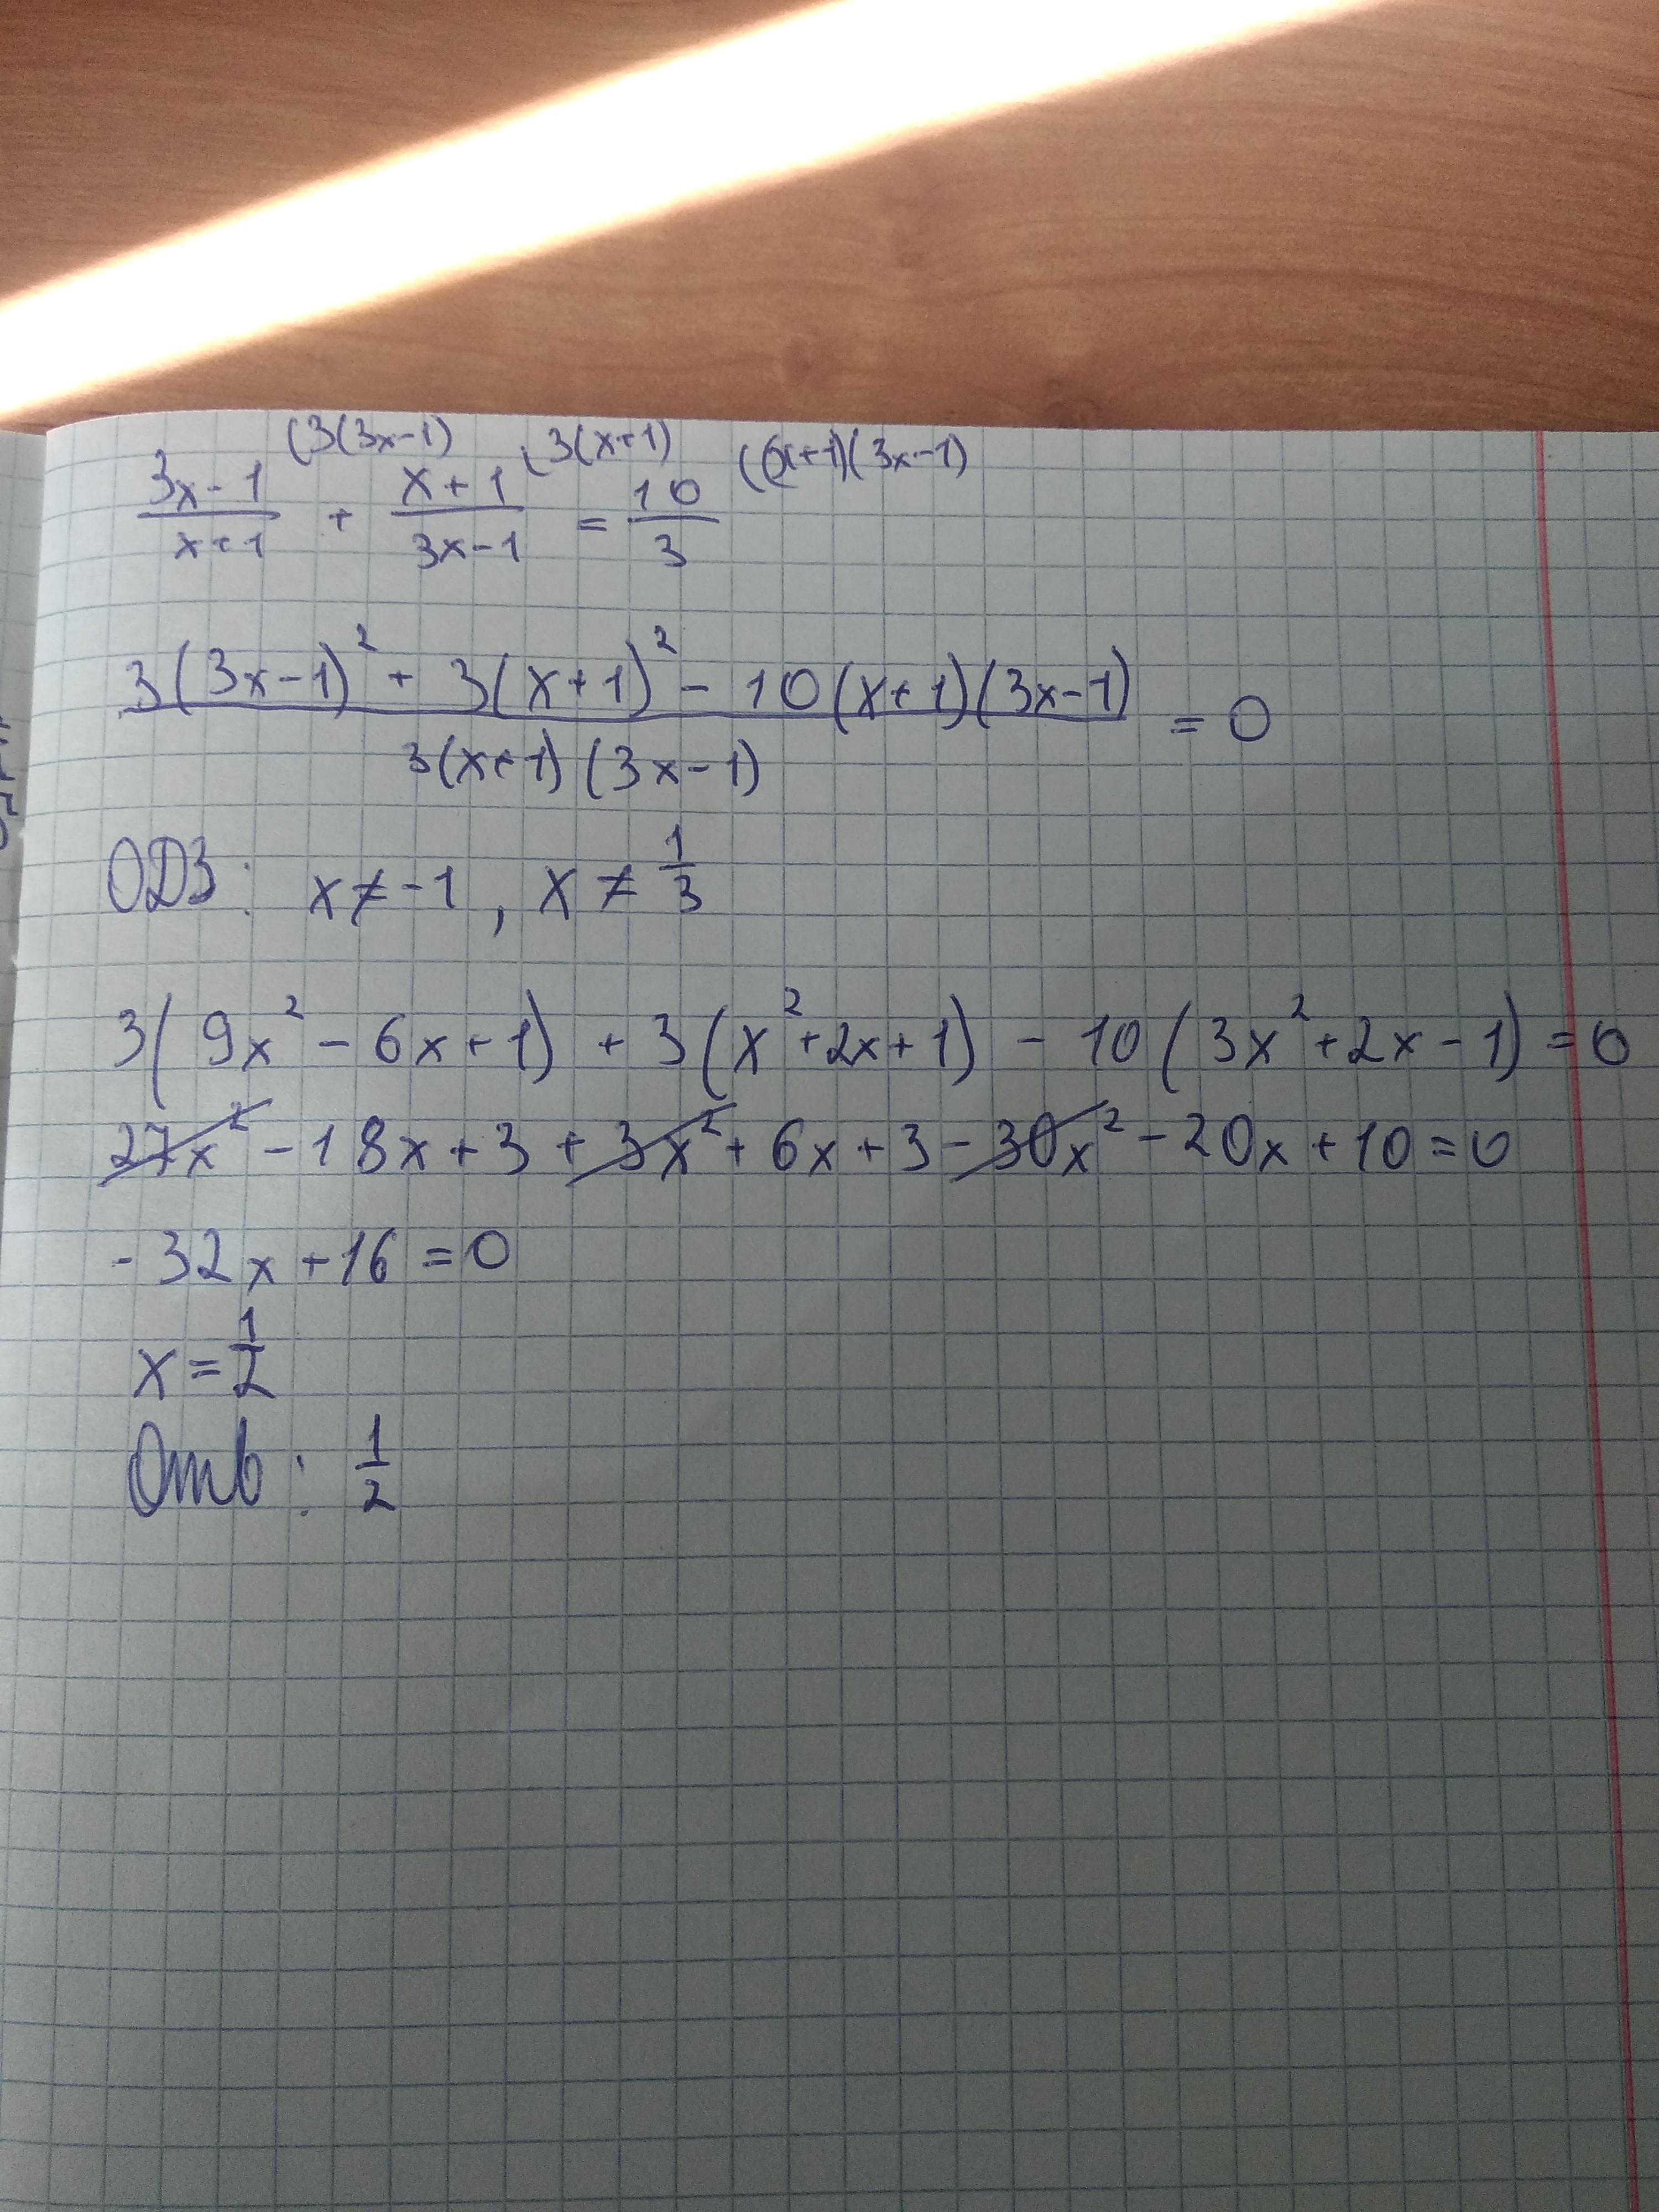 (3(3x-1) (3(x+1) ((x+1)(3x-1)
3x-1/x+1 + x+1/3x-1 = 10/3
3(3x-1)² + 3(x+1)² - 10(x+1)(3x-1) / 3(x+1)(3x-1) = 0
ОДЗ: x≠-1, x≠1/3
3(9x²-6x+1) + 3(x²+2x+1) - 10(3x²+2x-1) = 0
27x² - 18x + 3 + 3x² + 6x + 3 - 30x² - 20x + 10 = 0
-32x + 16 = 0
x = 1/2
Отв: 1/2